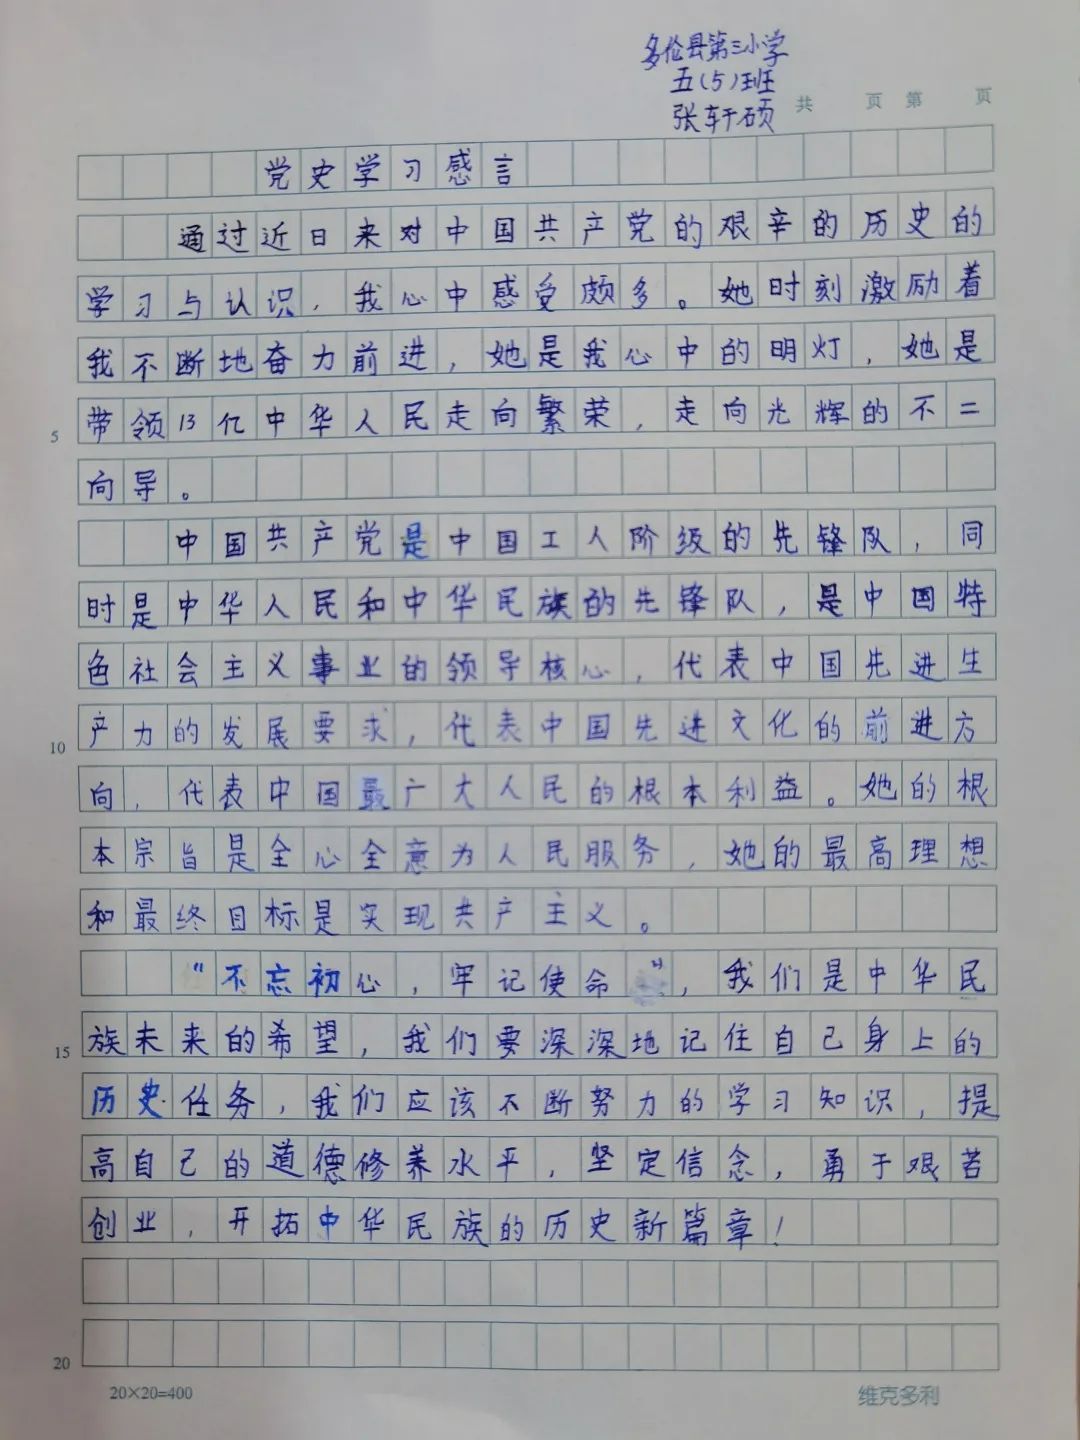 多伦县第三小学
五(5)班
张轩硕
共 页 第 页
党史学习感言
通过近日来对中国共产党的艰辛的历史的
学习与认识，我心中感受颇多。她时刻激励着
我不断地奋力前进，她是我心中的明灯，她是
5 带领13亿中华人民走向繁荣，走向光辉的不二
向导。
中国共产党是中国工人阶级的先锋队，同
时是中华人民和中华民族的先锋队，是中国特
色社会主义事业的领导核心，代表中国先进生
10 产力的发展要求，代表中国先进文化的前进方
向，代表中国最广大人民的根本利益。她的根
本宗旨是全心全意为人民服务，她的最高理想
和最终目标是实现共产主义。
“不忘初心，牢记使命”，我们是中华民
15 族未来的希望，我们要深深地记住自己身上的
历史任务，我们应该不断努力的学习知识，提
高自己的道德修养水平，坚定信念，勇于艰苦
创业，开拓中华民族的历史新篇章！
20
20×20=400 维克多利